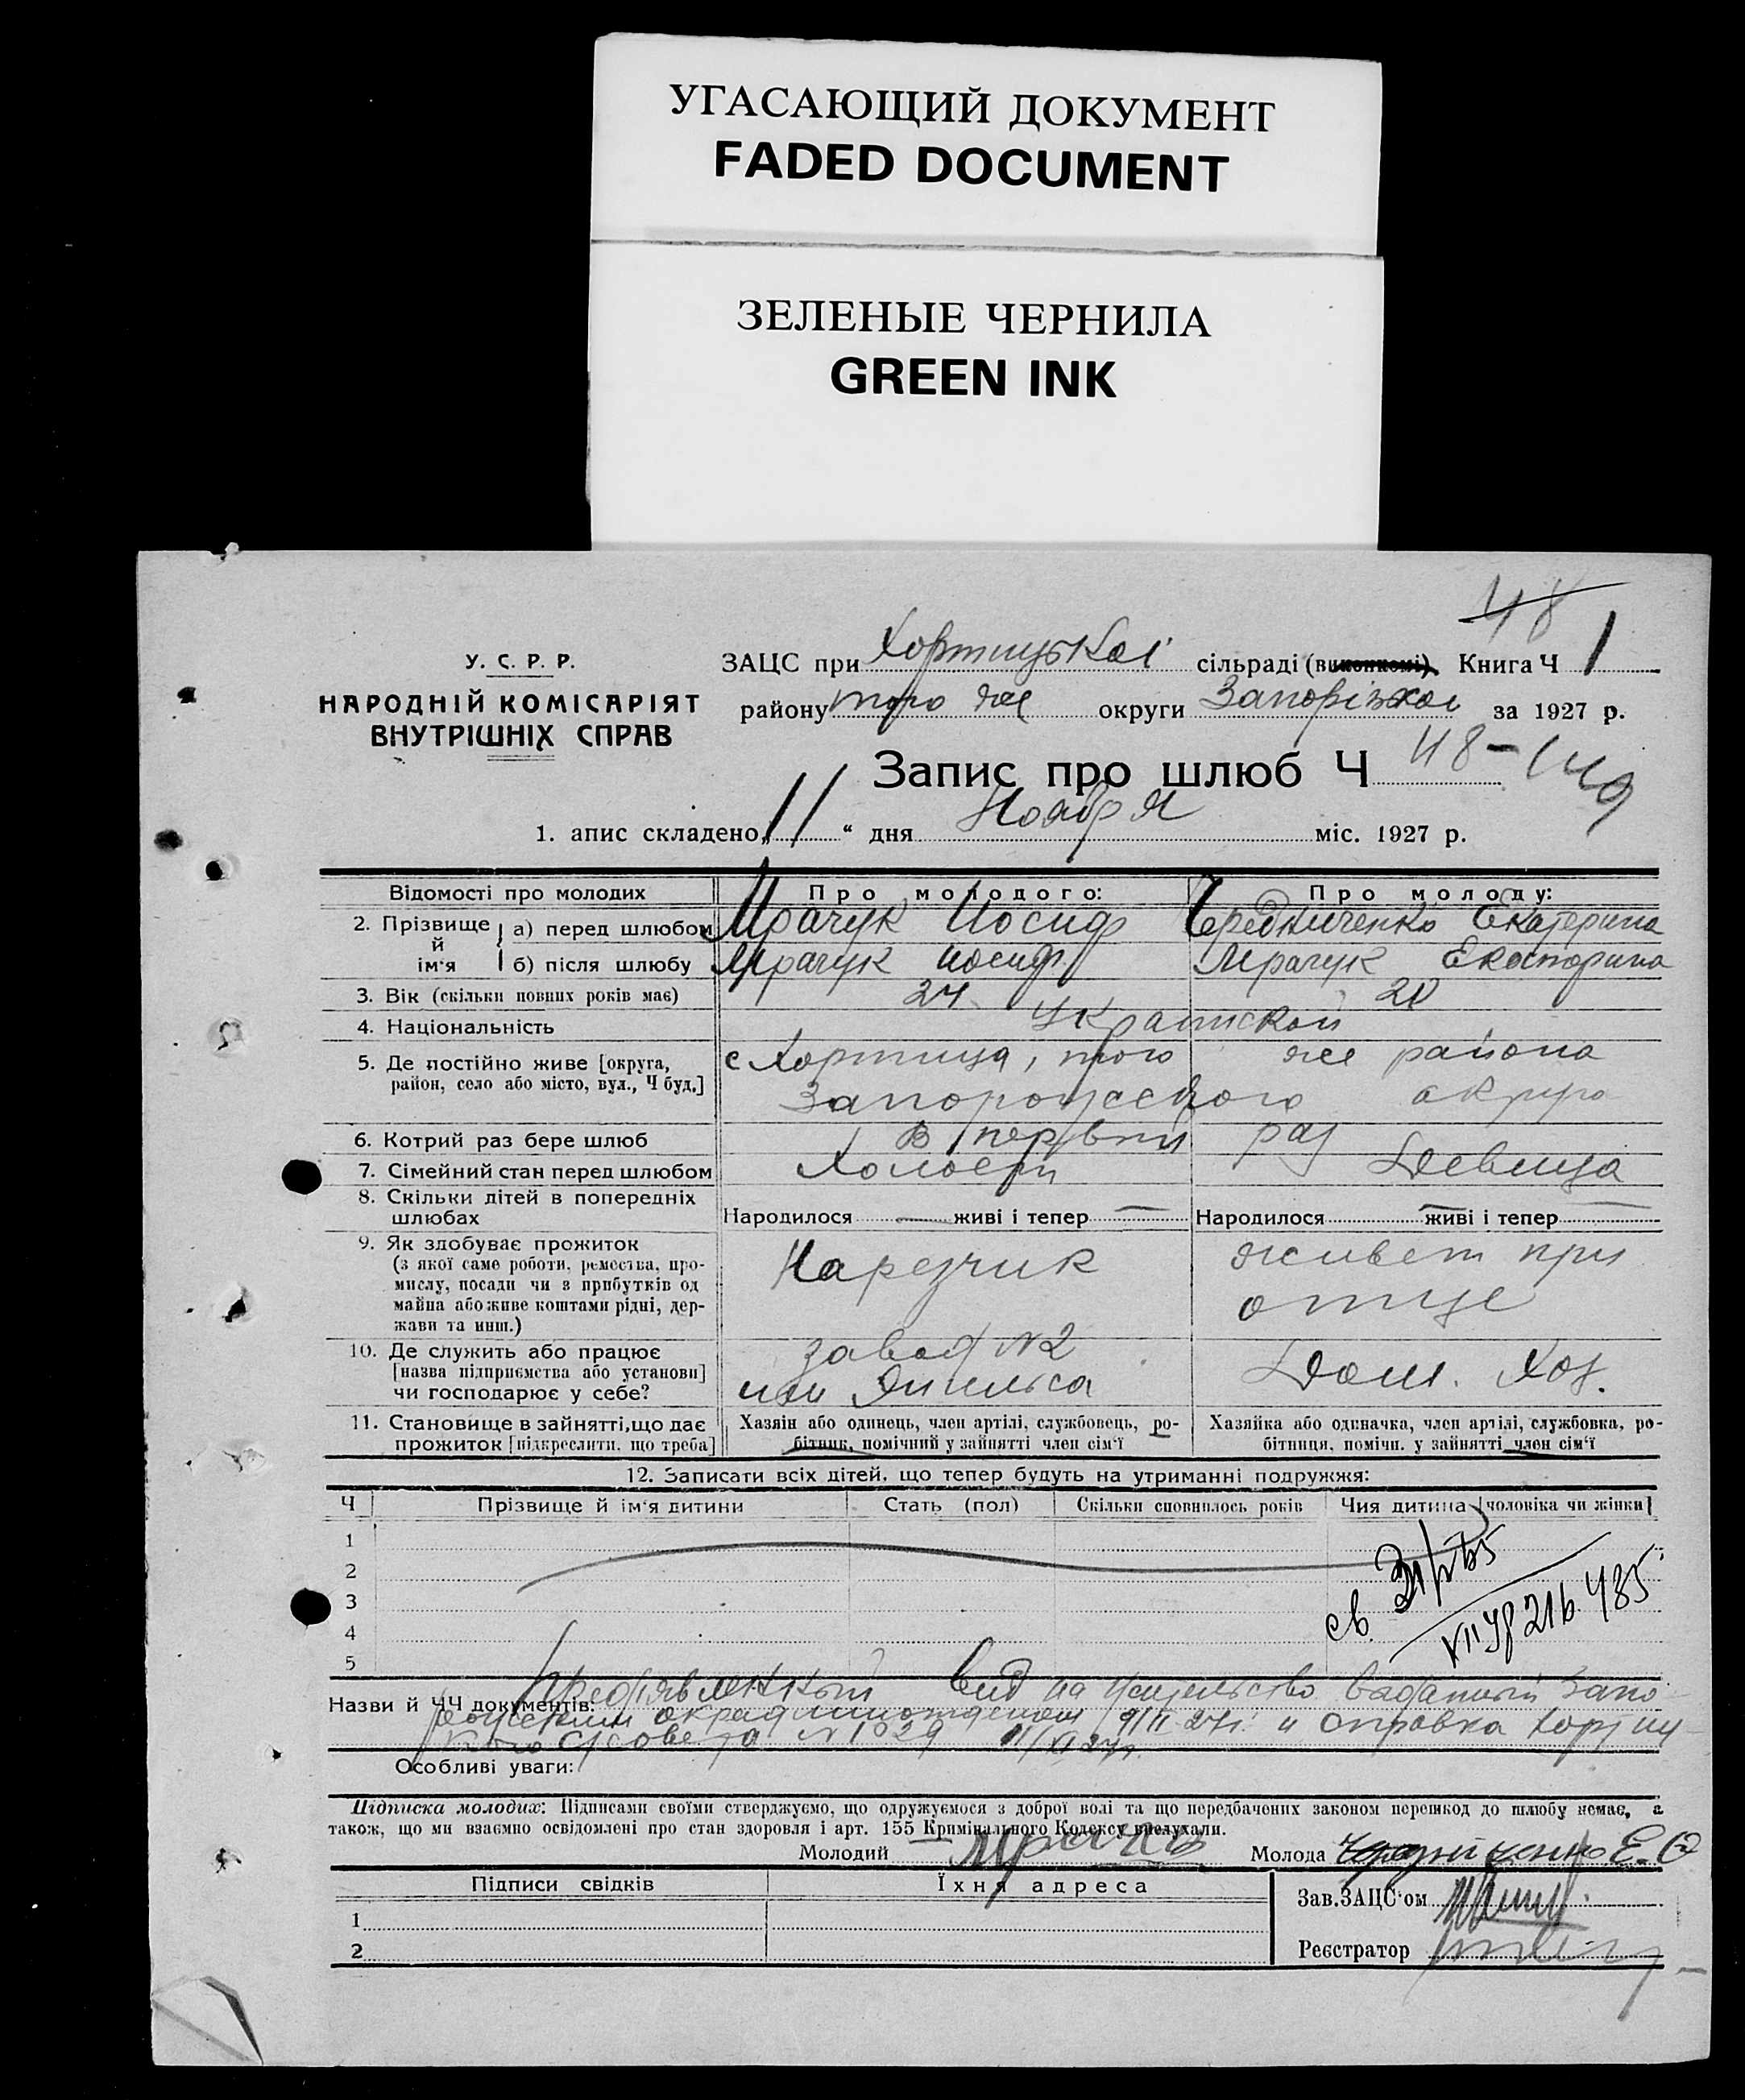 УГАСАЮЩИЙ ДОКУМЕНТ
FADED DOCUMENT
ЗЕЛЕНЫЕ ЧЕРНИЛА
GREEN INK
48
У. С. Р. Р.
НАРОДНІЙ КОМІСАРІЯТ
ВНУТРІШНІХ СПРАВ
ЗАЦС при Хортицької сільраді (виконкомі). Книга Ч 1
району того же округи Запорізкої за 1927 р.
Запис про шлюб Ч 48 -
1. апис складено „11“ дня Ноября міс. 1927 р.
Відомості про молодих Про молодого: Про молоду:
2. Прізвище й ім'я а) перед шлюбом Мрачук Иосиф Чередниченко Екатерина
б) після шлюбу Мрачук Иосиф Мрачук Екатерина
3. Вік (скільки повних років має) 24 20
4. Національність Украинской
5. Де постійно живе [округа, район, село або місто, вул., Ч буд.] с Хортица, того же района
Запорожского округа
6. Котрий раз бере шлюб В первый раз
7. Сімейний стан перед шлюбом Холост Девица
8. Скільки літей в попередніх шлюбах Народилося — живі і тепер — Народилося — живі і тепер —
9. Як здобуває прожиток
(з якої саме роботи, ремества, про-
мислу, посади чи з прибутків од
майна або живе коштами рідні, дер-
жави та инш.)
Нарезчик
живет при
отце
10. Де служить або працює
[назва підприємства або установи]
чи господарює у себе?
завод N2
им Энгельса
Дом. Хоз.
11. Становище в зайнятті, що дає
прожиток [підкреслити, що треба]
Хазяїн або одинець, член артілі, службовець, ро-
бітник, помічний у зайнятті член сім'ї
Хазяйка або одиначка, член артілі, службовка, ро-
бітниця, помічн. у зайнятті член сім'ї
12. Записати всіх дітей, що тепер будуть на утриманні подружжя:
Ч Прізвище й ім'я дитини Стать (пол) Скільки сповнилось років Чия дитина [чоловіка чи жінки]
1
2
3
4
5
св.
485
Назви й ЧЧ документів: Пред'явленный вид на жительство выданный Запо
рожским 9/II 27г. и справка Хортиц
кого с/совета N 1029 11/XI 27г.
Особливі уваги:
Підписка молодих: Підписами своїми стверджуємо, що одружуємося з доброї волі та що передбачених законом перешкод до шлюбу немає, а
також, що ми взаємно освідомлені про стан здоровля і арт. 155 Кримінального Кодексу вислухали.
Молодий Мрачук Молода Чередниченко Е. О
Підписи свідків Їхня адреса
1
2
Зав. ЗАЦС'ом
Реєстратор